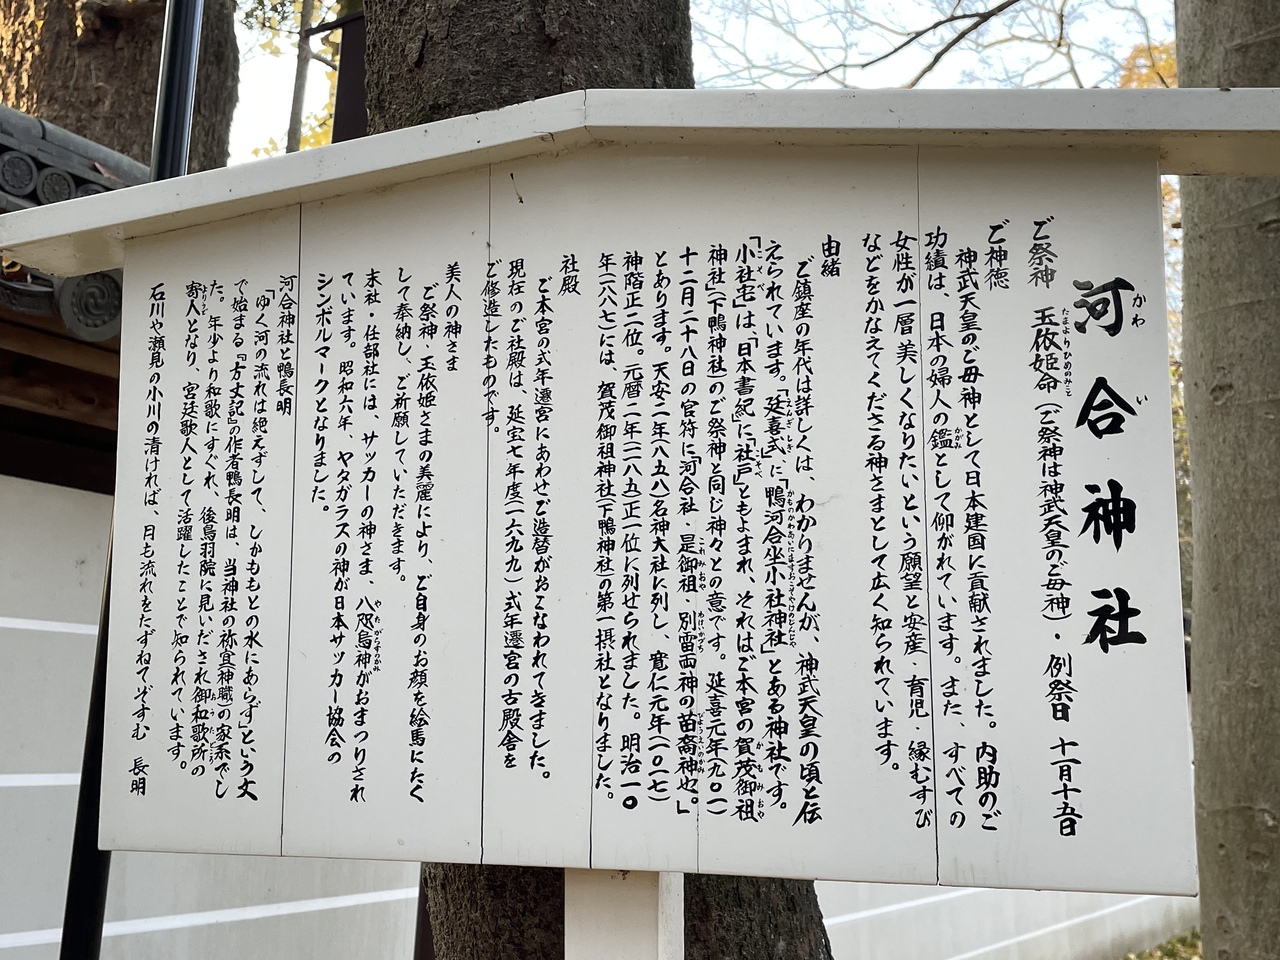 河合神社
ご祭神　玉依姫命（ご祭神は神武天皇のご母神）・例祭日　十一月十五日
ご神徳
神武天皇のご母神として日本建国に貢献されました。内助のご
功績は、日本の婦人の鑑として仰がれています。また、すべての
女性が一層美しくなりたいという願望と安産・育児・縁むすび
などをかなえてくださる神さまとして広く知られています。
由緒
ご鎮座の年代は詳しくは、わかりませんが、神武天皇の頃と伝
えられています。「延喜式」に「鴨河合坐小社神社」とある神社です。
「小社宅」は、「日本書紀」に「社戸」ともよまれ、それはご本宮の賀茂御祖
神社（下鴨神社）のご祭神と同じ神々との意です。延喜元年（九〇一）
十二月二十八日の官符に「河合社・是御祖・別雷両神の苗裔神也。」
とあります。天安二年（八五八）名神大社に列し、寛仁元年（一〇一七）
神階正二位。元暦二年（一一八五）正一位に列せられました。明治一〇
年（一八七七）には、賀茂御祖神社（下鴨神社）の第一摂社となりました。
社殿
ご本宮の式年遷宮にあわせご造替がおこなわれてきました。
現在のご社殿は、延宝七年度（一六七九）式年遷宮の古殿舎を
ご修造したものです。
美人の神さま
ご祭神・玉依姫さまの美麗により、ご自身のお顔を絵馬にたく
して奉納し、ご祈願していただきます。
末社・任部社には、サッカーの神さま、八咫烏神がおまつりされ
ています。昭和六年、ヤタガラスの神が日本サッカー協会の
シンボルマークとなりました。
河合神社と鴨長明
「ゆく河の流れは絶えずして、しかももとの水にあらず」という文
で始まる『方丈記』の作者鴨長明は、当神社の祢宜（神職）の家系でし
た。年少より和歌にすぐれ、後鳥羽院に見いだされ御和歌所の
寄人となり、宮廷歌人として活躍したことで知られています。
石川や瀬見の小川の清ければ、月も流れをたずねてぞすむ　長明